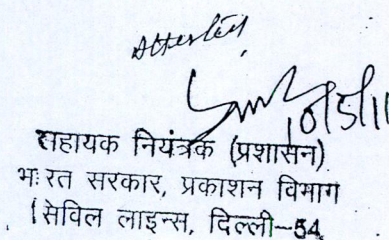 Attested
10/5/11
सहायक नियंत्रक (प्रशासन)
भारत सरकार, प्रकाशन विभाग
सिविल लाइन्स, दिल्ली-54